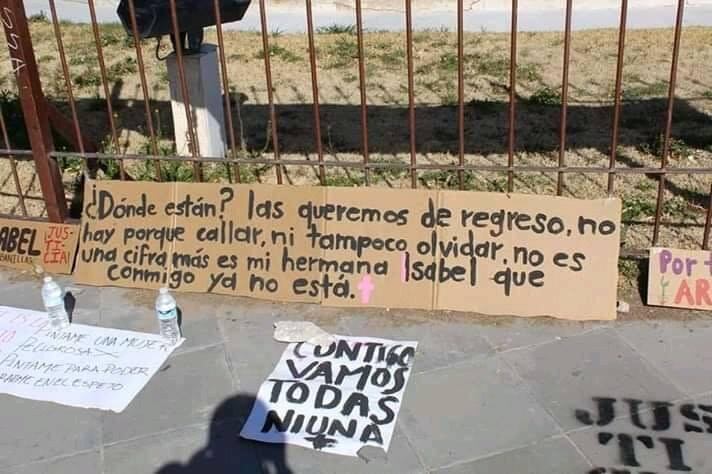 ABEL
¡JUS-
TI-
CIA!
¿Dónde están? las queremos de regreso, no
hay porque callar, ni tampoco olvidar, no es
una cifra más es mi hermana Isabel que
conmigo ya no está.
Por
AR
INTAME UNA MUJER
PELIGROSA
PINTAME PARA PODER
EN EL ESPEJO
CONTIGO
VAMOS
TODAS
NIUNA
JUS
TI